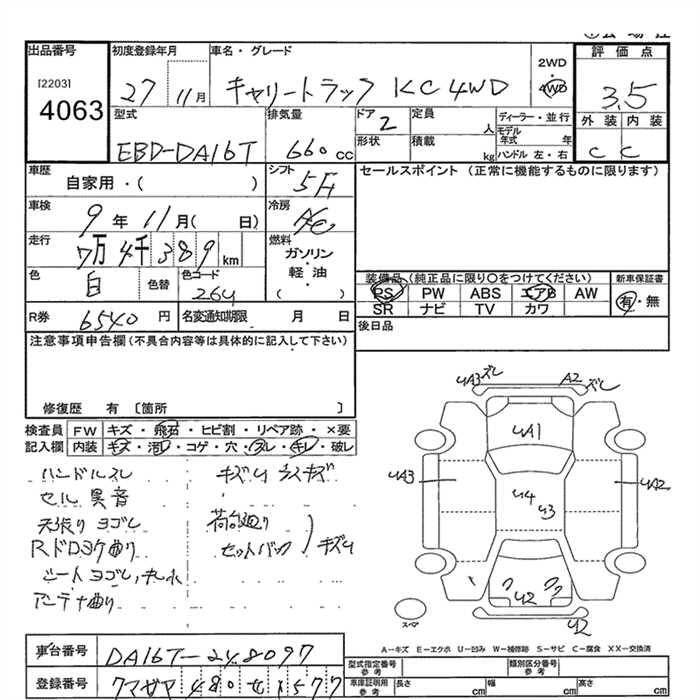 出品番号 初度登録年月 車名・グレード 評価点
[2203]
4063
27 11月 キャリートラック KC 4WD 2WD・4WD 3.5
型式 排気量 ドア 定員 ディーラー・並行 外装 内装
EBD-DA16T 660cc 2 人 モデル年式 年
形状 積載 kg ハンドル 左・右 C C
車歴 シフト セールスポイント（正常に機能するものに限ります）
自家用・（ ） 5F
車検 冷房
9年 11月（ 日） A/C
走行 燃料
7万4千389km ガソリン・軽油（ ）
色 色替 色コード 装備品（純正品に限り〇をつけてください） 新車保証書
白 26U PS PW ABS エアB AW 有・無
SR ナビ TV カワ
R券 6540円 名変通知期限 月 日 後日品
注意事項申告欄（不具合内容等は具体的に記入して下さい）
修復歴 有〔箇所 〕
検査員 FW キズ・飛石・ヒビ割・リペア跡・×要
記入欄 内装 キズ・汚レ・コゲ・穴・スレ・キレ・破レ
ハンドルスレ キズU ラスキズ
セル異音
天張りヨゴレ 荷台廻り
Rドロヨケ曲り セットバック キズU
シートヨゴレ、キレ大
アンテナ曲り
UA3 ズレ A2 ズレ
UA1
UA3 U4 U3 UA2
ワ ワ
U2
スペア U2
A－キズ E－エクボ U－凹み W－補修跡 S－サビ C－腐食 XX－交換済
車台番号 DA16T-248097
型式指定番号 参考 類別区分番号 参考
登録番号 クマガヤ 480 せ 1577
車庫証明用 参考 長さ cm 幅 cm 高さ cm